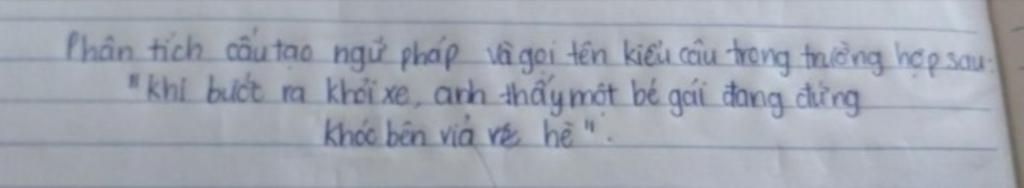 Phân tích cấu tạo ngữ pháp và gọi tên kiểu câu trong trường hợp sau:
"khi bước ra khỏi xe, anh thấy một bé gái đang đứng
khóc bên vỉa hè".